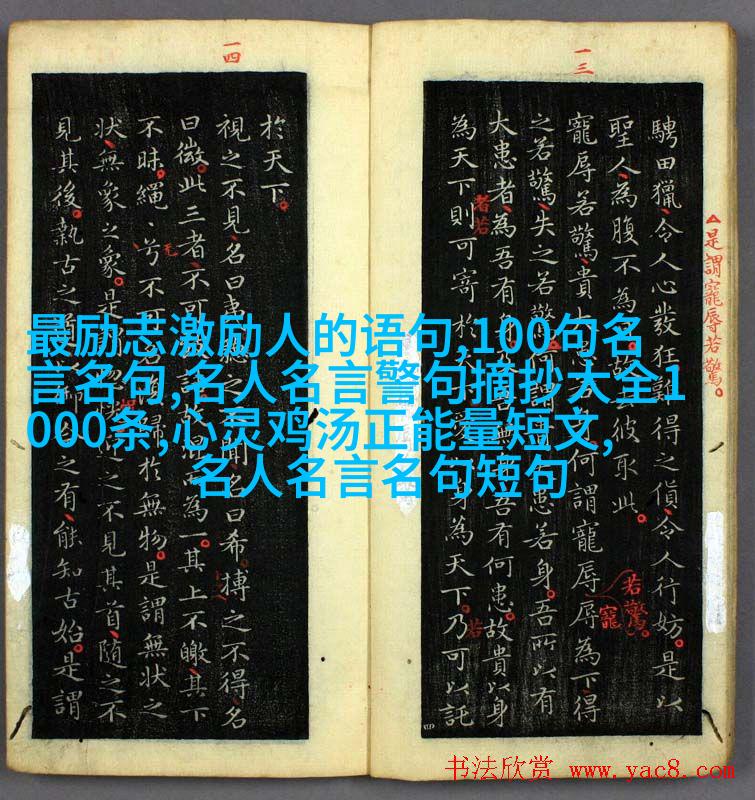 一三
騁田獵令人心發狂難得之貨令人行妨是以
聖人為腹不為彼取此
寵辱若驚貴何謂寵辱辱為下得
之若驚失之若驚何謂患若身吾所以有
大患者為吾有身吾有何患故貴以身
為天下則可寄於身為天下乃可以託
是謂寵辱若驚
者若
若驚
寵
若
一四
於天下
視之不見名曰聞名曰希搏之不得名
曰微此三者不可故為一其上不皦其下
不昧繩〻兮不可歸於無物是謂無狀之
狀無象之象是之不見其首隨之不
見其後執古之之有能知古始是謂
最励志激励人的语句,100句名
言名句,名人名言警句摘抄大全1
000条,心灵鸡汤正能量短文,
名人名言名句短句
书法欣赏 www.yac8.com